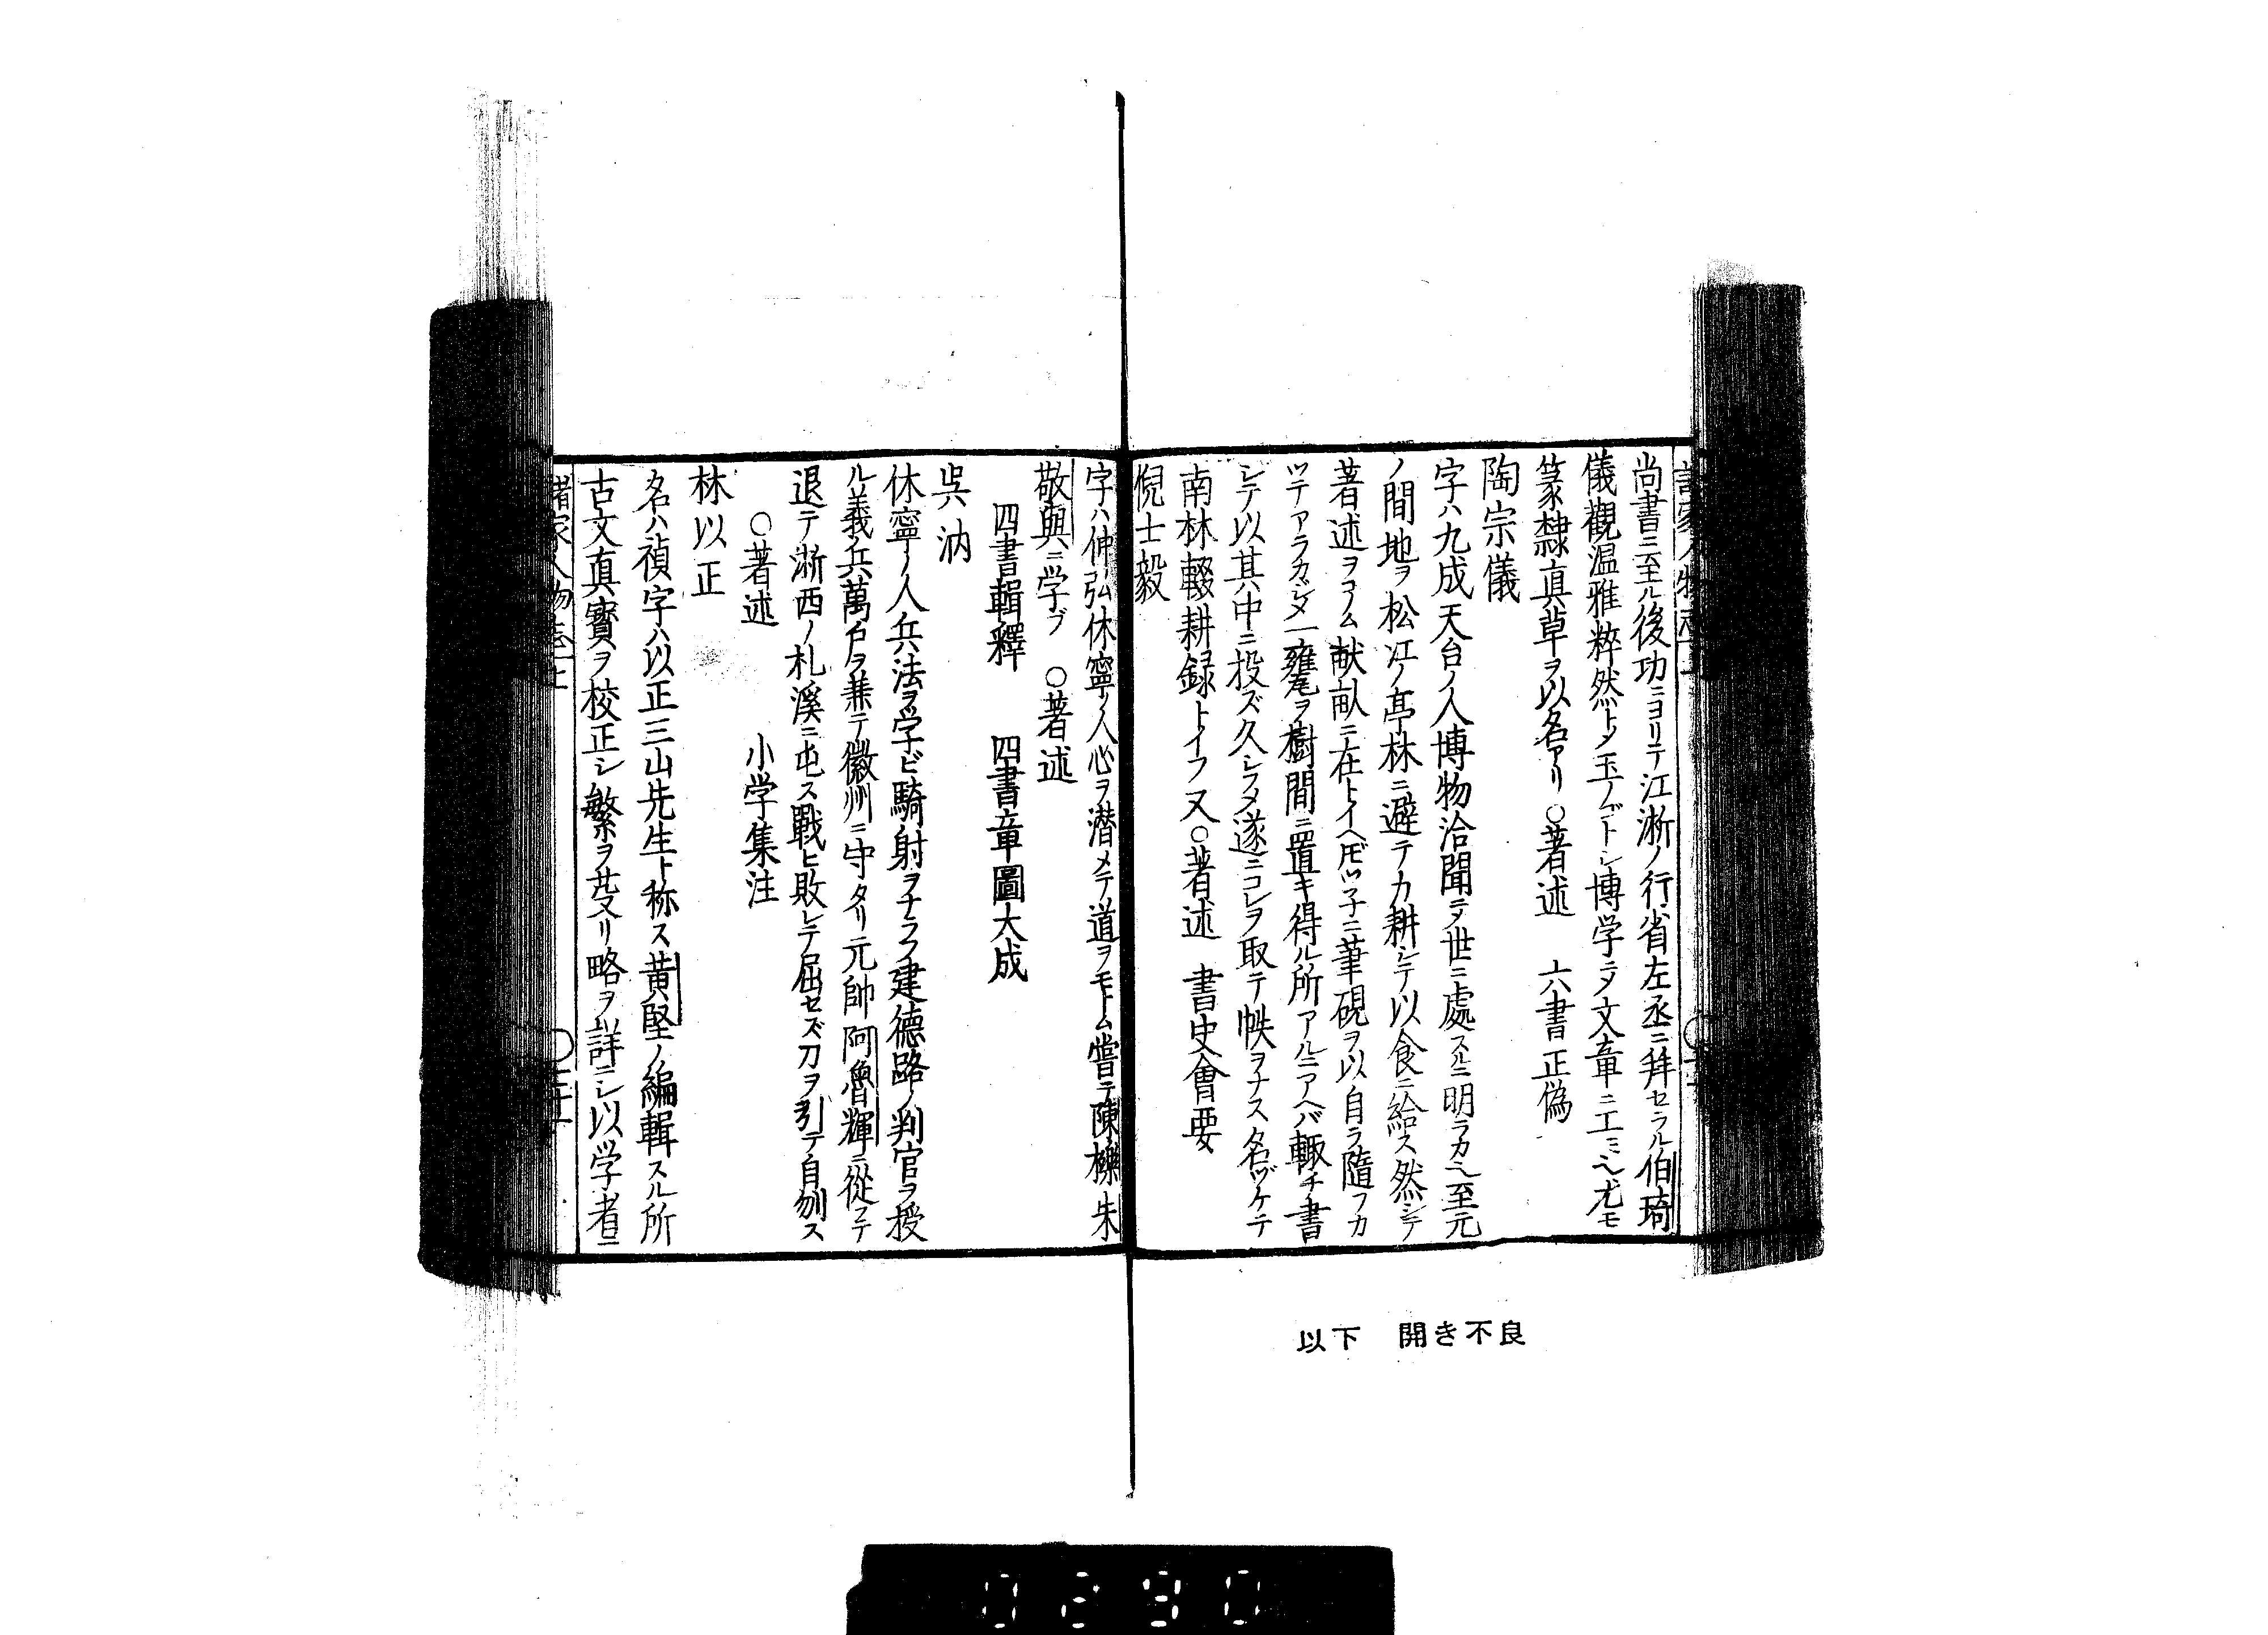 尚書ニ至ル後功ニヨリテ江淅ノ行省左丞ニ拜セラル伯琦
儀觀温雅粹然トメ玉ノゴトシ博学ニメ文章ニ工ミニ尤モ
篆隸真草ヲ以名アリ ○著述 六書正偽
陶宗儀
字ハ九成天台ノ人博物洽聞ニメ世ニ處スルニ明ラカ也至元
ノ間地ヲ松江ノ亭林ニ避テカ耕シテ以食ニ給ス然シテ
著述ヲコノム献畝ニ在トイヘ圧ツ子ニ筆硯ヲ以自ラ隨フカ
ツテアラカジメ一甕ヲ樹間ニ置キ得ル所アルニアヘバ輙チ書
シテ以其中ニ投ズ久シフメ遂ニコレヲ取テ帙ヲナス名ヅケテ
南林輟耕録トイフ又○著述 書史會要
倪士毅
字ハ仲弘休寧ノ人心ヲ潜メテ道ヲモトム嘗テ陳櫟朱
敬輿ニ学ブ ○著述
四書輯釋 四書章圖大成
呉汭
休寧ノ人兵法ヲ学ビ騎射ヲナラフ建德路ノ判官ヲ授
ル義兵萬戸ヲ兼テ徽州ニ守タリ元帥阿魯輝ニ從フテ
退テ淅西ノ札溪ニ屯ス戰ヒ敗レテ屈セズ刀ヲ引テ自刎ス
○著述 小学集注
林以正
名ハ禎字ハ以正三山先生ト称ス黄堅ノ編輯スル所
古文真寳ヲ校正シ繁ヲ芟リ略ヲ詳ニシ以学者ニ
諸家人物志上
以下 開き不良
0290